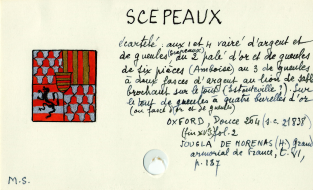 SCEPEAUX
écartelé : aux 1 et 4 vairé d'argent et
de gueules (Scepeaux) au 2 palé d'or et de gueules
de six pièces (Amboise) au 3 de gueules
à deux fasces d'argent au lion de sable
brochant sur le tout (Estouteville). Sur
le tout de gueules à quatre burelles d'or
(ou fascé d'or et de gueules)
OXFORD, Douce 264 (s.c. 21838)
(fin XV) fol. 2
JOUGLA DE MORENAS (H.) Grand
armorial de France, t. VI,
p. 187
M.S.